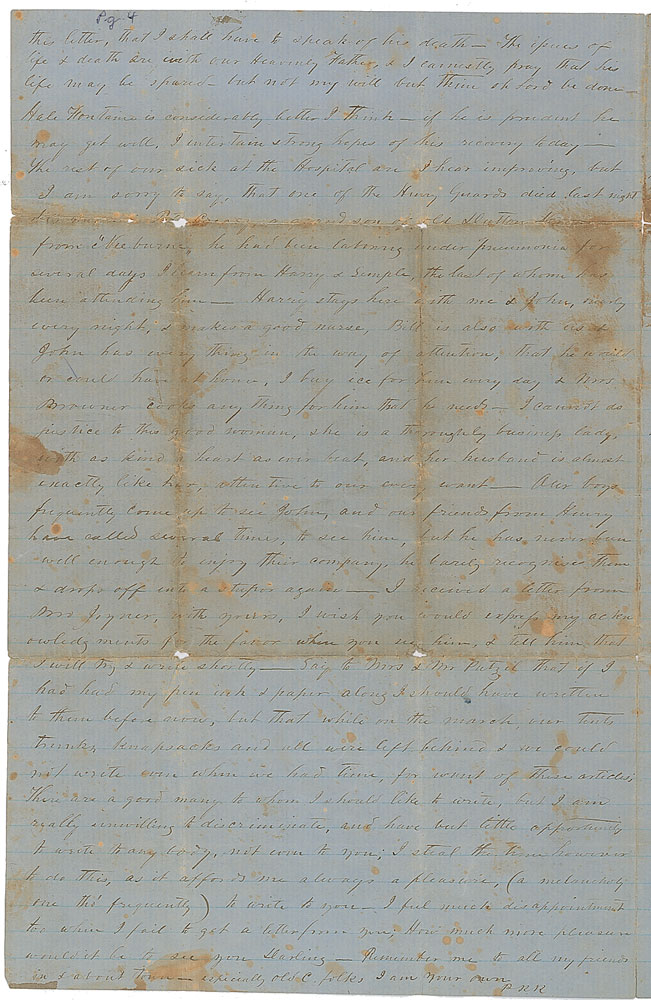 Pg 4
this letter, that I shall have to speak of his death — The issues of
life & death are with our Heavenly Father, & I earnestly pray that his
life may be spared — but not my will but thine oh Lord be done —
Hale Fontaine is considerably better I think — if he is prudent he
may get well, I entertain strong hopes of his recovery today —
The rest of our sick at the Hospital are I hear improving, but
I am sorry to say, that one of the Henry Guards died last night
son of old
from "Leeburne", he had been laboring under pneumonia for
several days I learn from Harry & Semple, the last of whom has
been attending him — Harry stays here with me & John, nearly
every night, & makes a good nurse, Bill is also with us &
John has every thing in the way of attention, that he would
or could have at home, I buy ice for him every day & Mrs
Browner cooks any thing for him that he needs — I cannot do
justice to this good woman, she is a thoroughly business lady,
with as kind a heart as ever beat, and her husband is almost
exactly like her, attentive to our every want — Our boys
frequently come up to see John, and our friends from Henry
have called several times, to see him, but he has never been
well enough to enjoy their company, he barely recognises them
& drops off into a stupor again — I received a letter from
Mrs Joyner, with yours, I wish you would express my ackn
owledgments for the favor when you see him, & tell him that
I will try & write shortly — Say to Mrs & Mr Putzel that if I
had had my pen ink & paper along I should have written
to them before now, but that while on the march our tents
trunks, knapsacks and all were left behind & we could
not write even when we had time, for want of these articles;
There are a good many to whom I should like to write, but I am
really unwilling to discriminate, and have but little opportunity
to write to any body, not even to you; I steal the time however
to do this, as it affords me always a pleasure, (a melancholy
one tho' frequently) to write to you — I feel much disappointment
too when I fail to get a letter from you, How much more pleasure
would it be to see you Darling — Remember me to all my friends
in & about town — especially old C. folks I am Your own
P R R